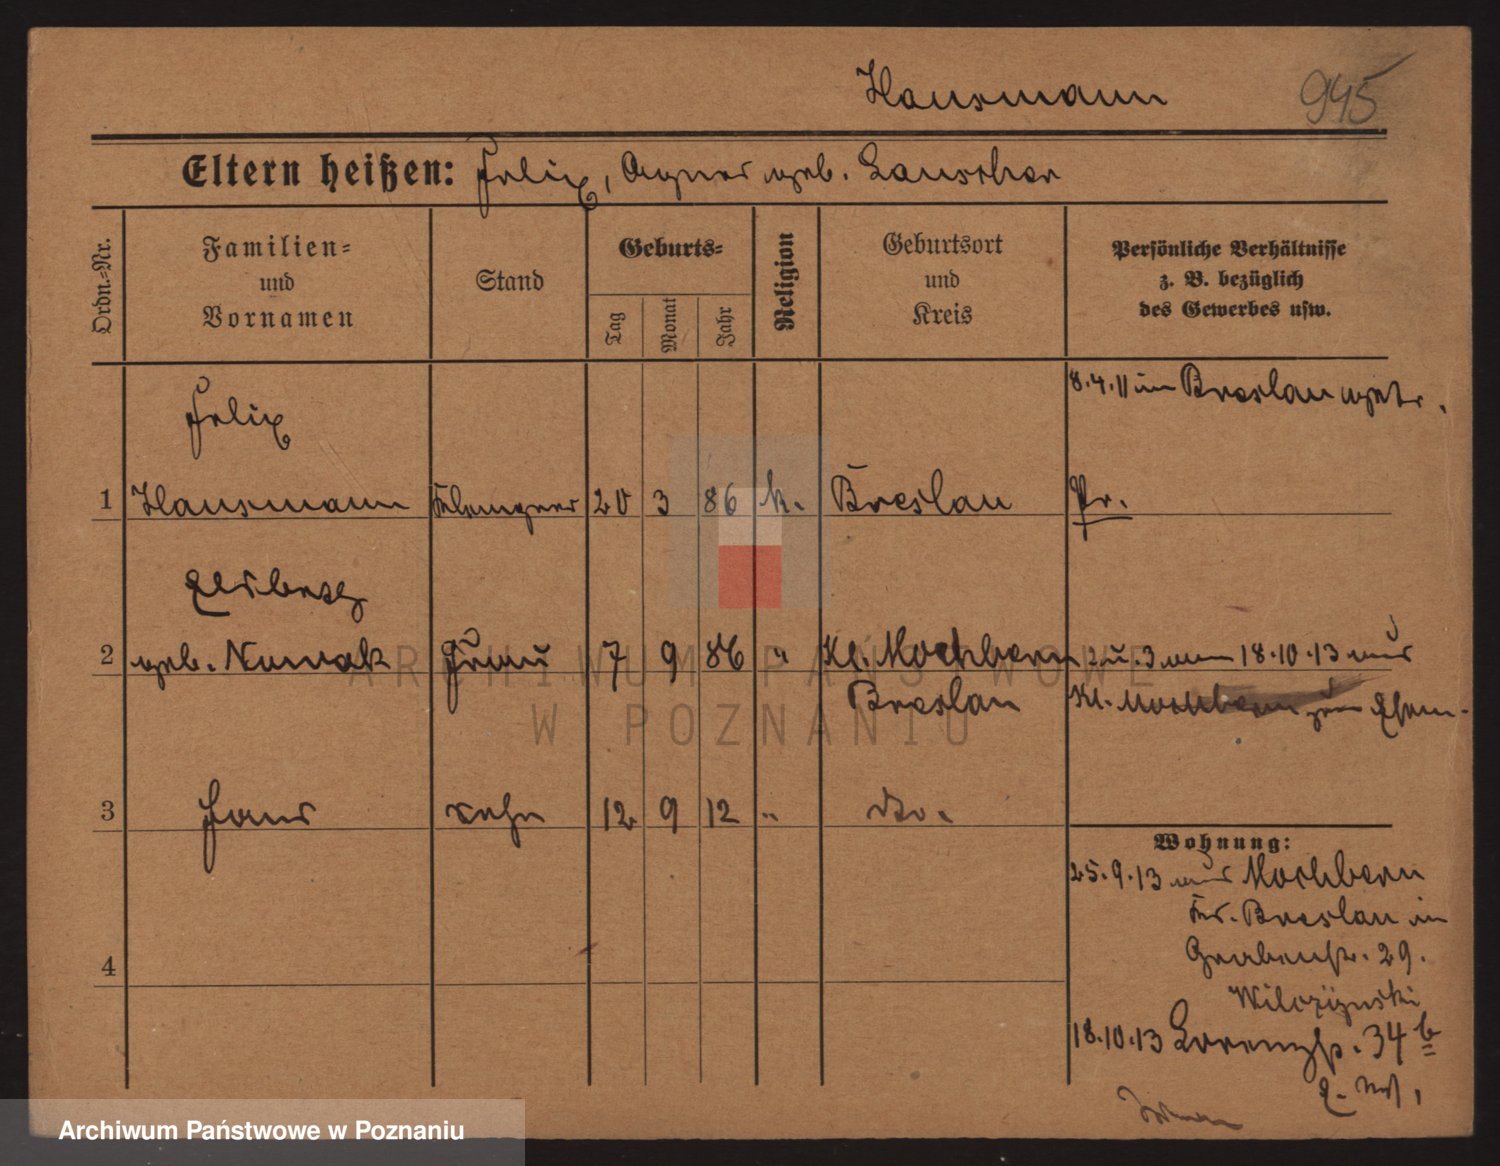 Hausmann
945
Eltern heißen: Felix, Agnes geb. Lauscher
Ordn.=Nr.
Familien=
und
Vornamen
Stand
Geburts=
Tag
Monat
Jahr
Religion
Geburtsort
und
Kreis
Persönliche Verhältnisse
z. B. bezüglich
des Gewerbes usw.
8.4.11 in Breslau getr.
Felix
1 Hausmann Klempner 20 3 86 k. Breslau Pr.
Elsbeth
2 geb. Nowak Frau 7 9 86 " Kl. Mochbern 2 u. 3 am 18.10.13 aus
Breslau Kl. Mochbern zum Ehem.
3 Hans Sohn 12 9 12 " do.
4
Wohnung:
25.9.13 aus Mochbern
Kr. Breslau in
Grabenstr. 29.
Wilczynski
18.10.13 Lorenzstr. 34 b
ARCHIWUM PAŃSTWOWE
W POZNANIU
Archiwum Państwowe w Poznaniu